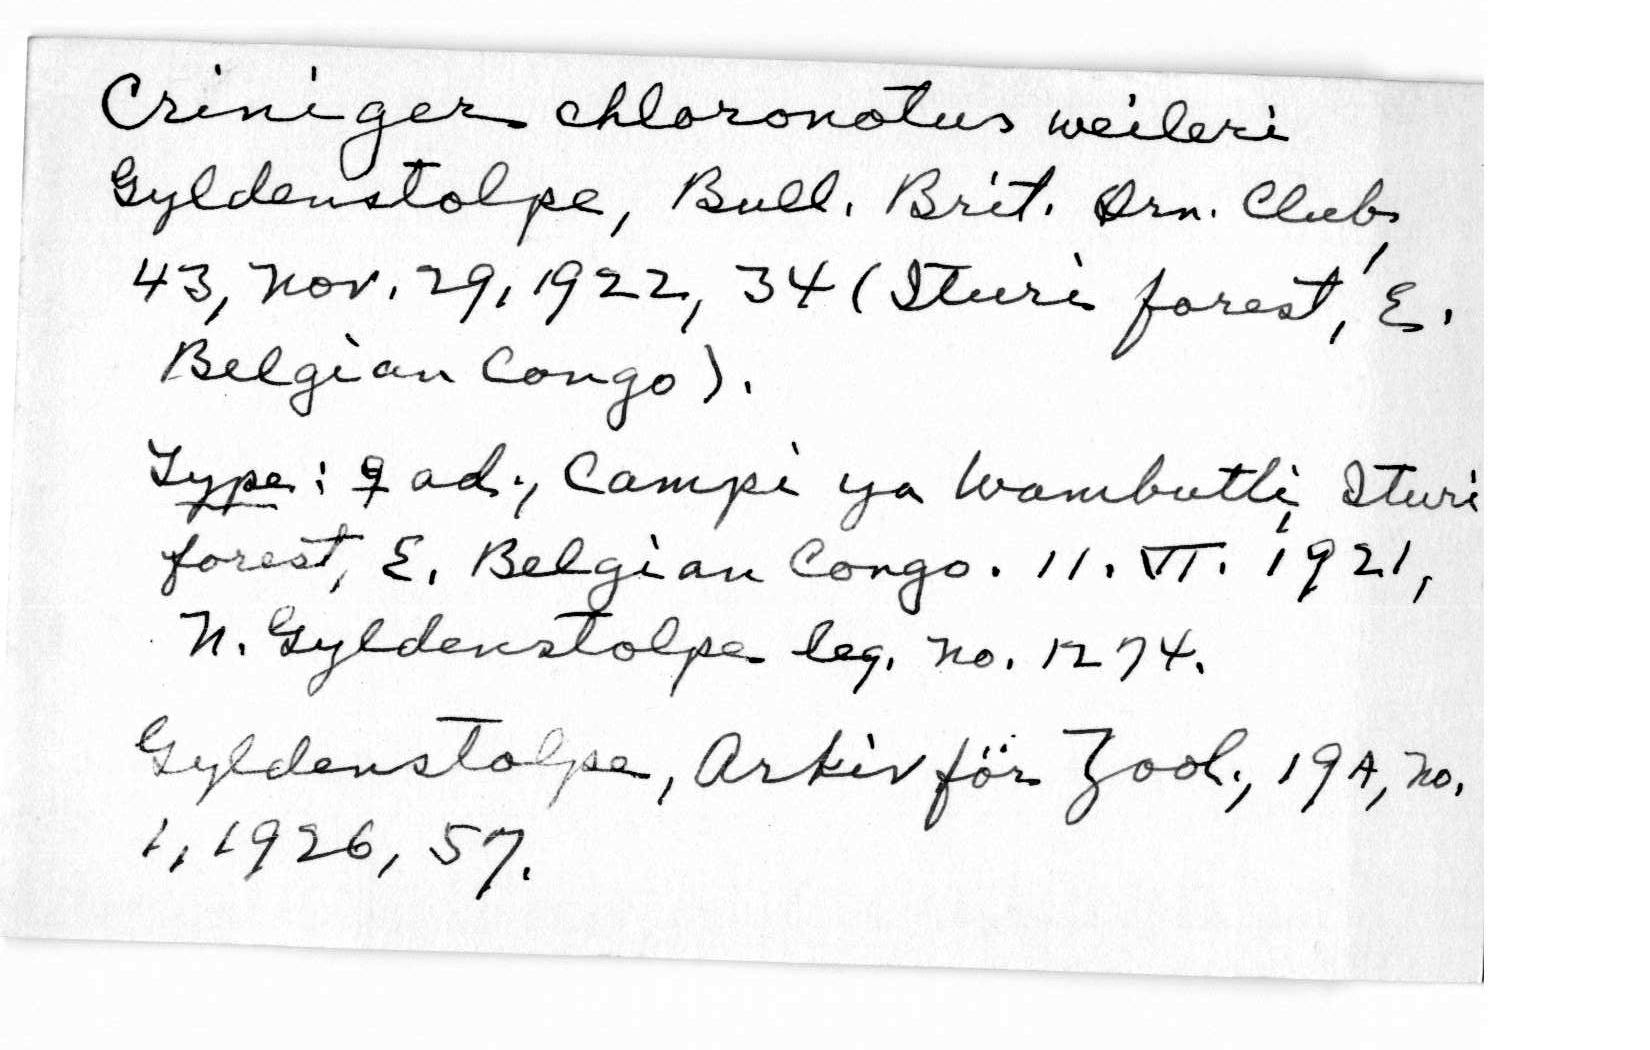 Criniger chloronotus weileri
Gyldenstolpe, Bull. Brit. Orn. Club,
43, Nov. 29, 1922, 34 (Ituri forest, E.
Belgian Congo).
Type: ♀ ad., Campi ya Wambutti, Ituri
forest, E. Belgian Congo. 11. VI. 1921,
N. Gyldenstolpe leg. no. 1274.
Gyldenstolpe, Arkiv för Zool., 19A, no.
1, 1926, 57.